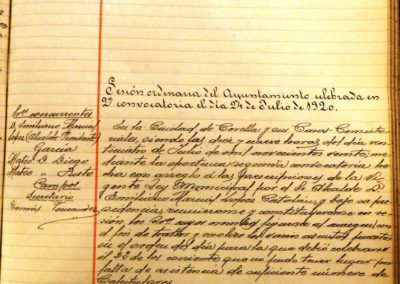 Sesión ordinaria del Ayuntamiento celebrada en
2ª convocatoria el día 24 de Julio de 1920.
Sres. concurrentes
D. Emiliano
López (Alcalde Presidente)
García
Mateo D. Diego
Mateo " Justo
Campos
Secretario
Tomás Fernandez
En la Ciudad de Corella y sus Casas Consisto-
riales, siendo las diez y nueve horas del día vein-
ticuatro de Julio de mil novecientos veinte, me-
diante la oportuna segunda convocatoria, he-
cha con arreglo á las prescripciones de la vi-
gente Ley Municipal por el Sr. Alcalde D.
Emiliano López Catalán y bajo su pre-
sidencia, reunieronse y constituyeronse en se-
sión los Sres. que
el fin de tratar y resolver los varios asuntos puestos
en el orden del día para la que debió celebrarse
el 22 de los corrientes que no pudo tener lugar por
falta de asistencia de suficiente número de
Capitulares.